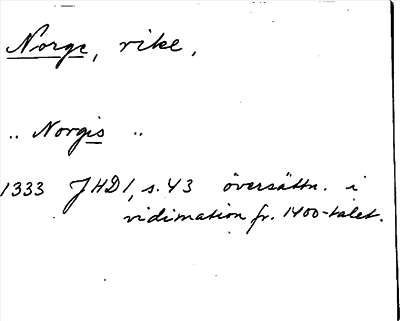 Norge, rike.
" Norgis "
1333 JHD 1, s. 43 översättn. i
vidimation fr. 1400-talet.